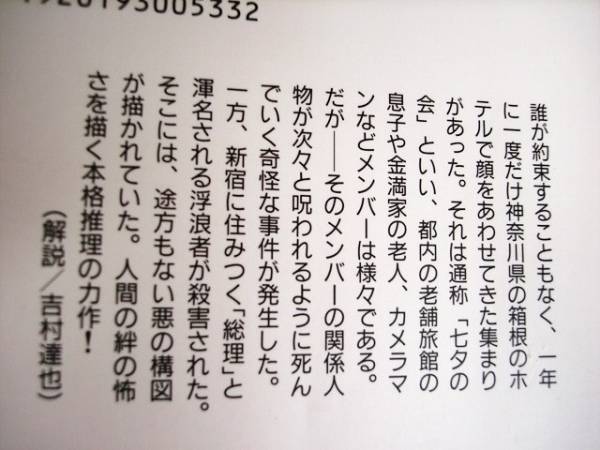 1920193005332
誰が約束することもなく、一年
に一度だけ神奈川県の箱根のホ
テルで顔をあわせてきた集まり
があった。それは通称「七夕の
会」といい、都内の老舗旅館の
息子や金満家の老人、カメラマ
ンなどメンバーは様々である。
だが──そのメンバーの関係人
物が次々と呪われるように死ん
でいく奇怪な事件が発生した。
一方、新宿に住みつく「総理」と
渾名される浮浪者が殺害された。
そこには、途方もない悪の構図
が描かれていた。人間の絆の怖
さを描く本格推理の力作！
（解説／吉村達也）